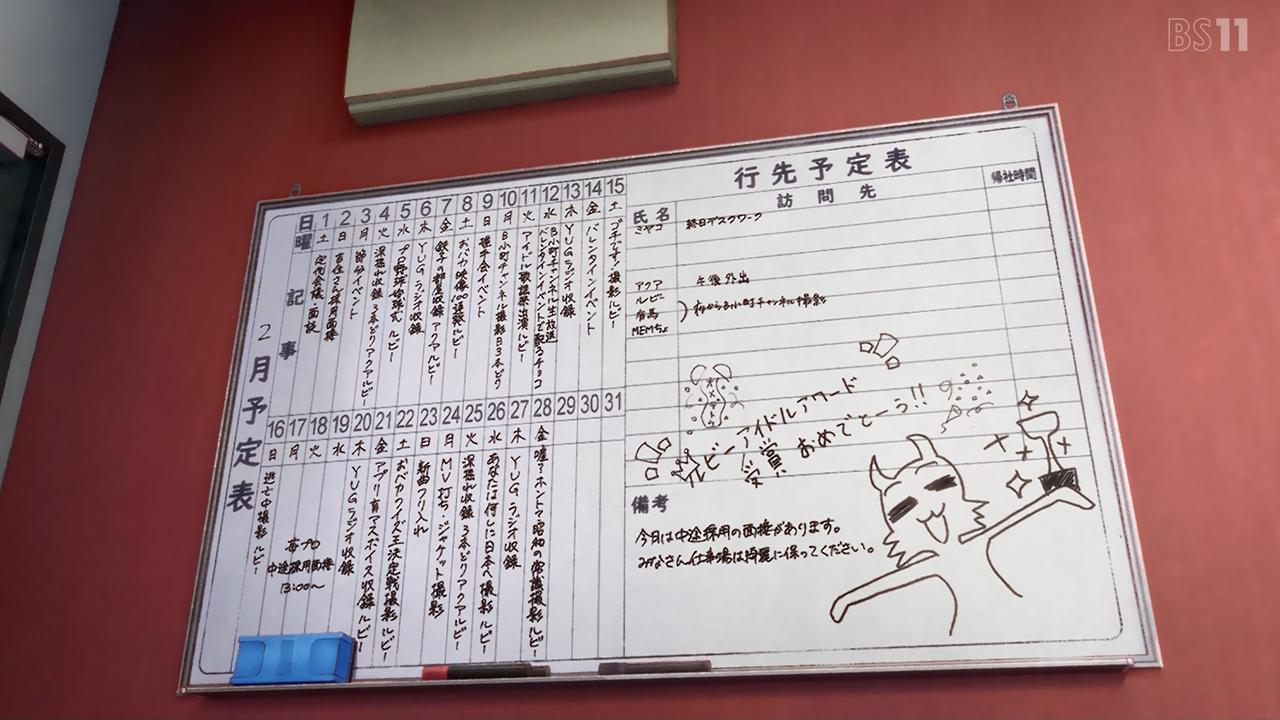 BS11
2月予定表
日
曜
記事
1 土 定例会議 面談
2 日
3 月 節分イベント
4 火 深掘れ収録 3本どり アクアルビ
5 水 プロ野球始球式 ルビー
6 木 YUGラジオ収録
7 金
8 土 おバカ映像100連発ルビー
9 日 握手会イベント
10 月 B小町チャンネル撮影日3本どり
11 火 アイドル歌謡祭出演ルビー
12 水 B小町チャンネル生放送
バレンタインイベントで配るチョコ
13 木 YUGラジオ収録
14 金 バレンタインイベント
15 土 ゴチです!撮影ルビー
16 日 逃亡中撮影 ルビー
17 月
18 火
苺プロ
中途採用面接
13:00〜
19 水
20 木 YUGラジオ収録
21 金 アプリ育アスボイス収録ルビー
22 土 おバカクイズ王決定戦撮影ルビー
23 日 新曲フリ入れ
24 月 MV打ち ジャケット撮影
25 火 深掘れ収録 3本どりアクアルビ
26 水 あなたは何しに日本へ撮影ルビー
27 木 YUGラジオ収録
28 金 嘘?ホント?昭和の常識撮影ルビー
29
30
31
行先予定表
氏名
訪問先
帰社時間
ミヤコ 終日デスクワーク
アクア 午後外出
ルビー
有馬
MEMちょ
夜からB小町チャンネル撮影
ルビーアイドルアワード
受賞 おめでとーう!!
備考
今月は中途採用の面接があります。
みなさん仕事場は綺麗に保ってください。